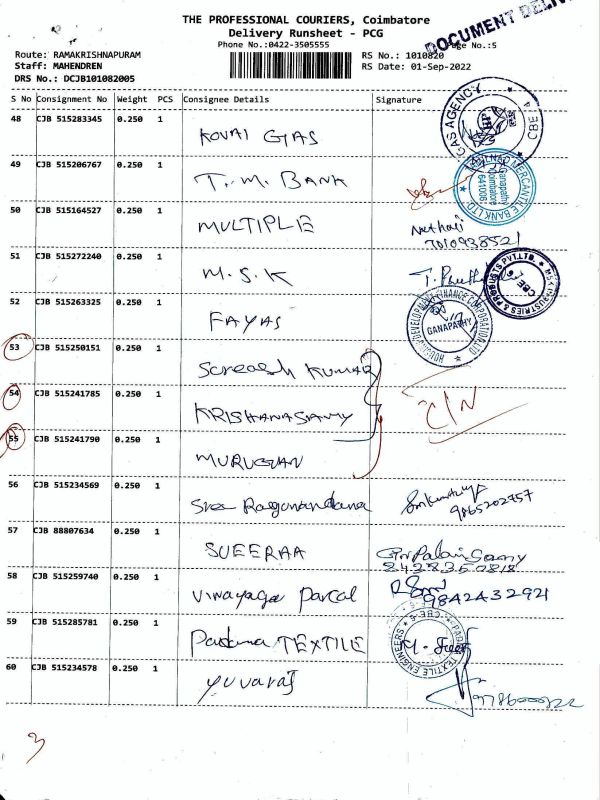 THE PROFESSIONAL COURIERS, Coimbatore
Delivery Runsheet - PCG
DOCUMENT
Phone No.:0422-3505555
Page No.:5
Route: RAMAKRISHNAPURAM
RS No.: 1010820
Staff: MAHENDREN
RS Date: 01-Sep-2022
DRS No.: DCJB101082005
S No Consignment No Weight PCS Consignee Details Signature
48 CJB 515283345 0.250 1
KOVAI GAS
GAS AGENCY
CBE
49 CJB 515206767 0.250 1
T.M. BANK
MERCANTILE BANK LTD.
Ganapathy
Coimbatore
641006
50 CJB 515164527 0.250 1
MULTIPLE
7010938521
51 CJB 515272240 0.250 1
M.S.K
MSK INDUSTRIES & PRODUCTS PVT.LTD.
CBE
52 CJB 515263325 0.250 1
FAYAS
HOUSING DEVELOPMENT FINANCE CORPORATION LTD
GANAPATHY
53 CJB 515250151 0.250 1
Screash KUMAR
54 CJB 515241785 0.250 1
KRISHANASAMY
C/N
55 CJB 515241790 0.250 1
MURUGAN
56 CJB 515234569 0.250 1
Sree Ragunandana
9865202757
57 CJB 88807634 0.250 1
SUEERAA
58 CJB 515259740 0.250 1
Vinayaga Parcal
9842432921
59 CJB 515285781 0.250 1
Padma TEXTILE
TEXTILE ENGINEERS
CBE-6
60 CJB 515234578 0.250 1
yuvaraj
3